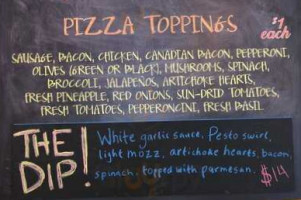 PIZZA TOPPINGS
$1 each
SAUSAGE, BACON, CHICKEN, CANADIAN BACON, PEPPERONI,
OLIVES (GREEN OR BLACK), MUSHROOMS, SPINACH,
BROCCOLI, JALAPENOS, ARTICHOKE HEARTS,
FRESH PINEAPPLE, RED ONIONS, SUN-DRID TOMATOES,
FRESH TOMATOES, PEPPERONCINI, FRESH BASIL.
THE DIP!
White garlic sauce, Pesto swirl,
light mozz, artichoke hearts, bacon,
spinach, topped with parmesan.
$14